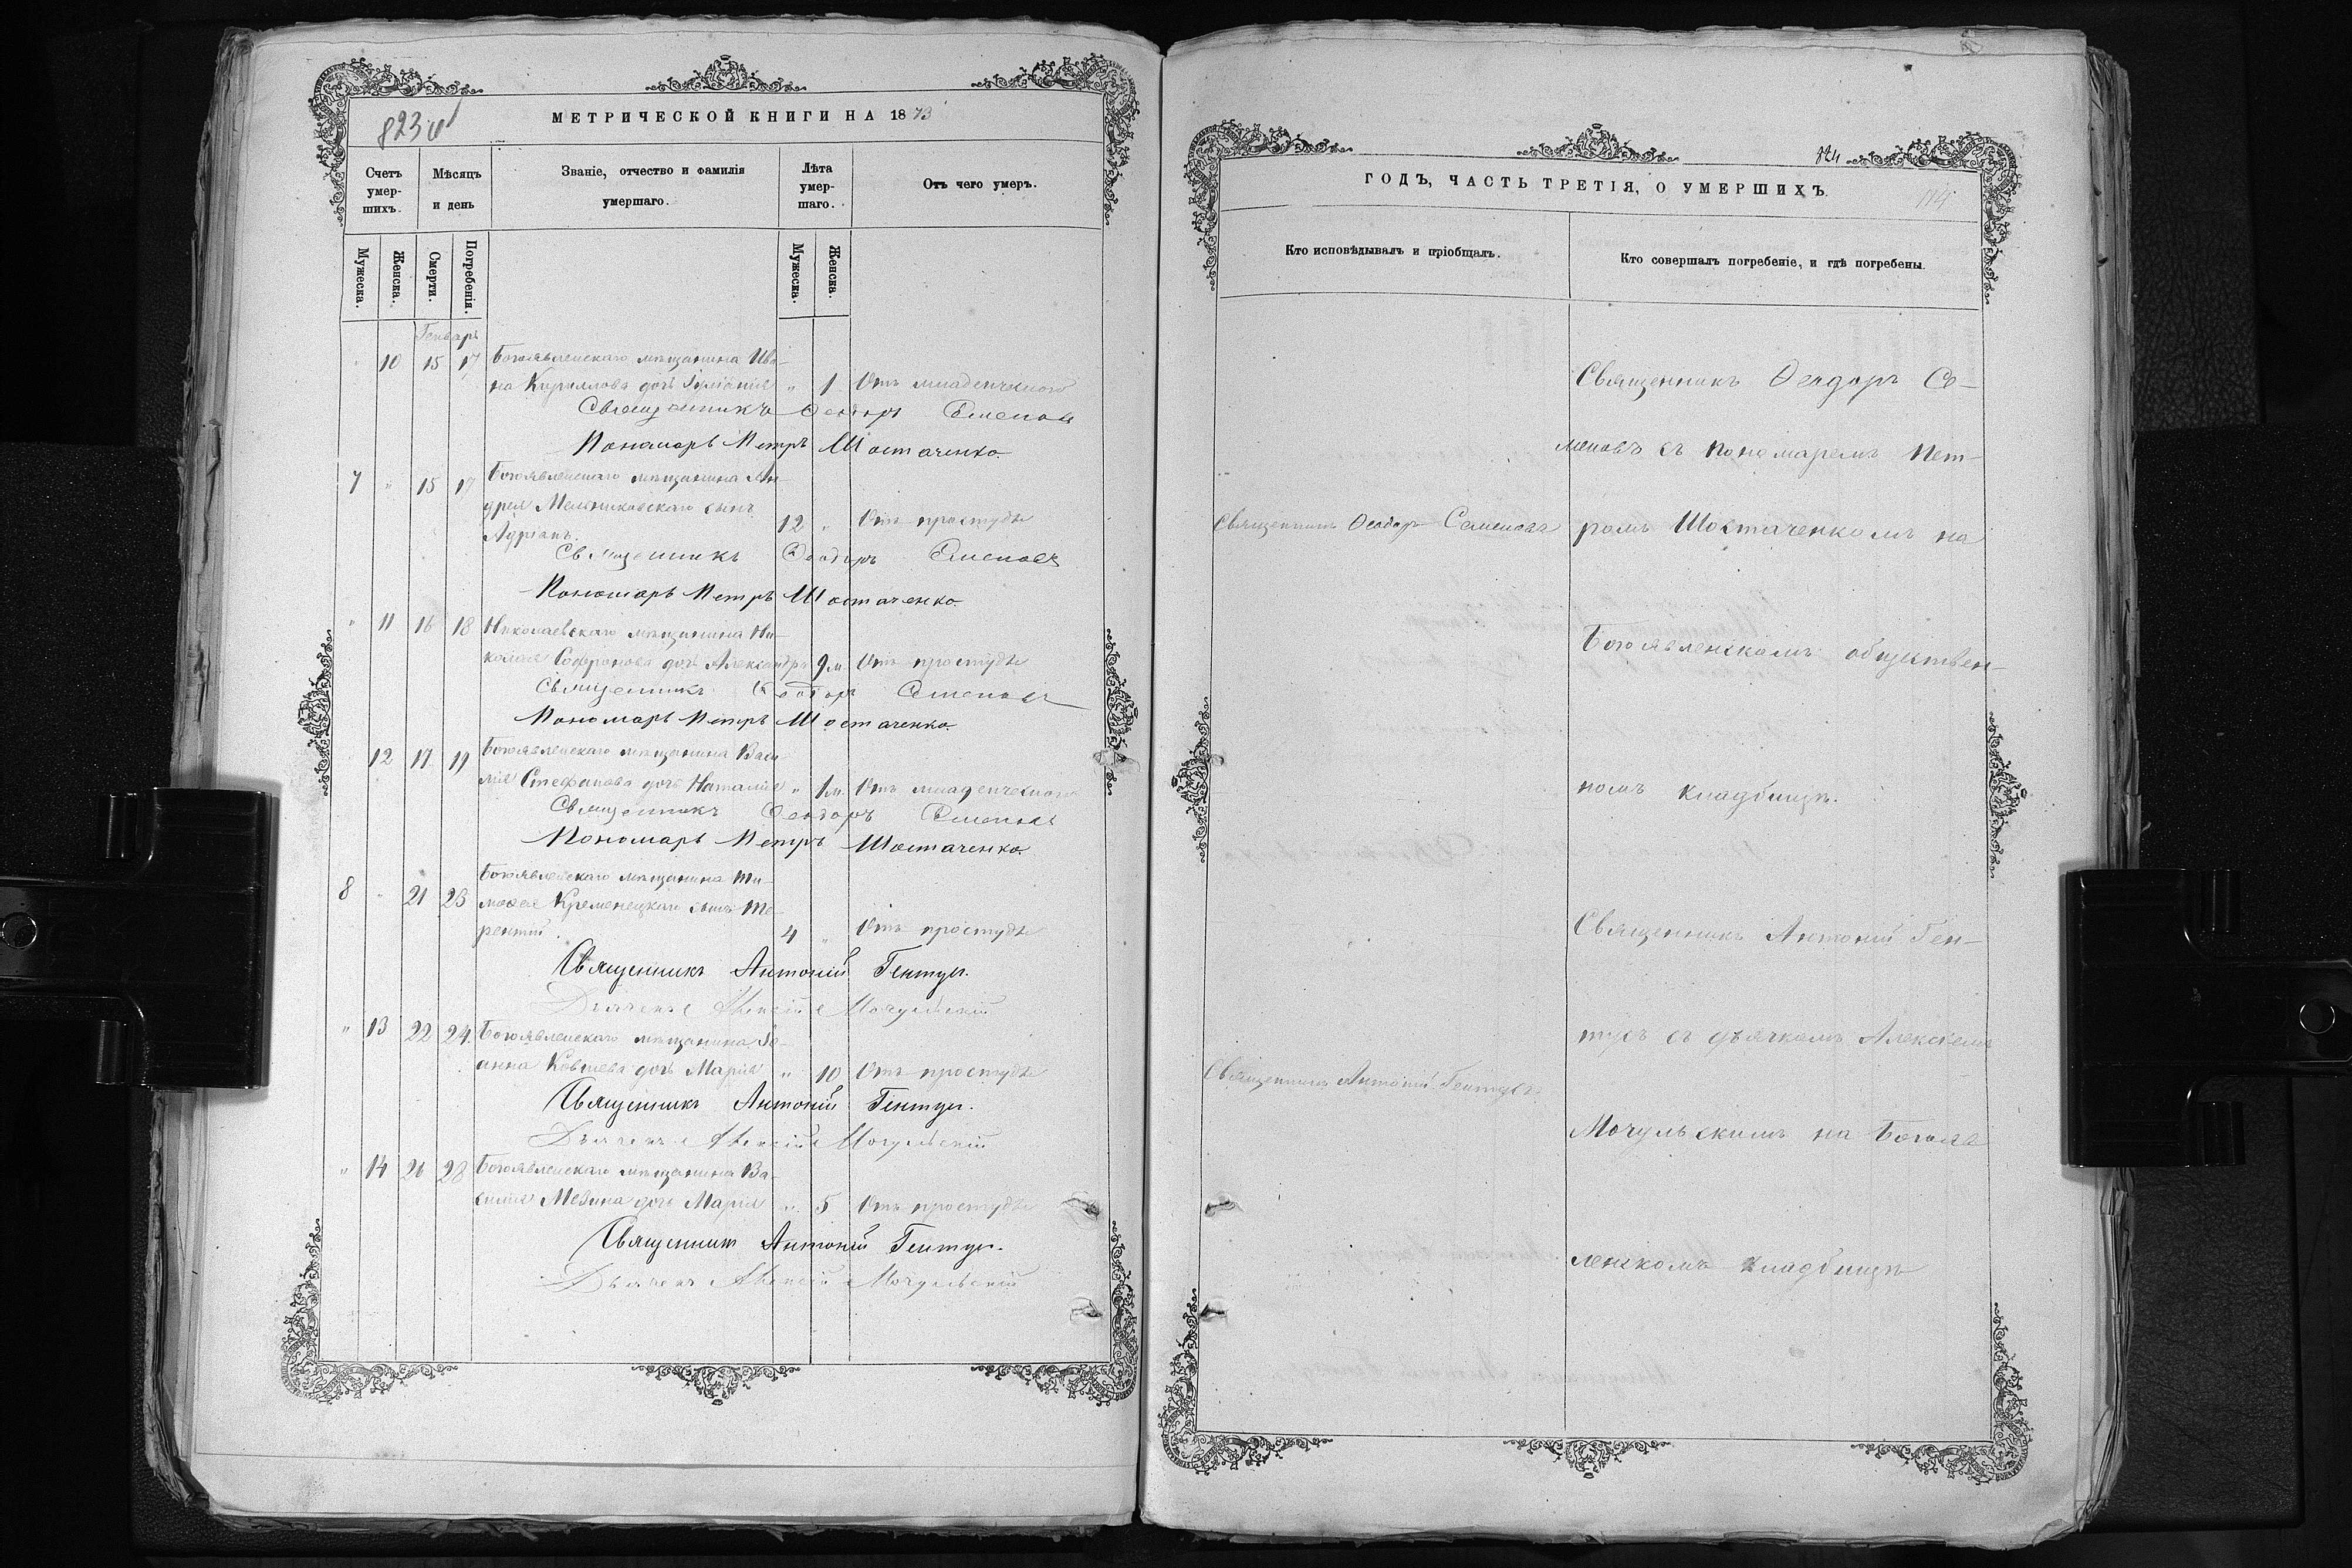 823
МЕТРИЧЕСКОЙ КНИГИ НА 1873
Счетъ умер-шихъ.
Мѣсяцъ и день
Званіе, отчество и фамилія умершаго.
Лѣта умер-шаго.
Отъ чего умеръ.
Мужеска.
Женска.
Смерти.
Погребенія.
Мужеска.
Женска.
Генварь
" 10 15 17 Богоявленскаго мѣщанина Ива-
на Кириллова дочь " 1 Отъ младенческого
Священникъ Ѳеодоръ Семеновъ
Пономарь Петръ Шостаченко.
7 " 15 17 Богоявленскаго мѣщанина Ан-
дрея Мельниковскаго сынъ
Адріанъ. 12 " Отъ простуды
Священникъ Ѳеодоръ Семеновъ
Пономарь Петръ Шостаченко.
" 11 16 18 Николаевскаго мѣщанина Ни-
колая Софронова дочь Александра 9 м. Отъ простуды
Священникъ Ѳеодоръ Семеновъ
Пономарь Петръ Шостаченко.
12 17 19 Богоявленскаго мѣщанина Васи-
лія Стефанова дочь Наталія " 1 м. Отъ младенческого
Священникъ Ѳеодоръ Семеновъ
Пономарь Петръ Шостаченко.
8 " 21 23 Богоявленскаго мѣщанина Ти-
моѳея Кременецкаго сынъ Те-
рентій. 4 " Отъ простуды
Священникъ Антоній Гентуъ.
Дьячекъ Алексій Мочульскій
" 13 22 24. Богоявленскаго мѣщанина Іо-
анна Ковшева дочь Марія " 10 Отъ простуды
Священникъ Антоній Гентуъ.
Дьячекъ Алексій Мочульскій
" 14 26 28 Богоявленскаго мѣщанина Ва-
силія дочь Марія " 5 Отъ простуды
Священникъ Антоній Гентуъ.
Дьячекъ Алексій Мочульскій
824
ГОДЪ, ЧАСТЬ ТРЕТІЯ, О УМЕРШИХЪ.
Кто исповѣдывалъ и пріобщалъ.
Кто совершалъ погребеніе, и гдѣ погребены.
Священникъ Ѳеодоръ Се-
меновъ съ пономаремъ Пет-
Священникъ Ѳеодоръ Семеновъ
ромъ Шостаченкомъ на
Богоявленскомъ обществен-
номъ кладбищѣ.
Священникъ Антоній Ген-
туъ съ дьячкомъ Алексіемъ
Священникъ Антоній Гентуъ
Мочульскимъ на Богояв
ленскомъ кладбищѣ